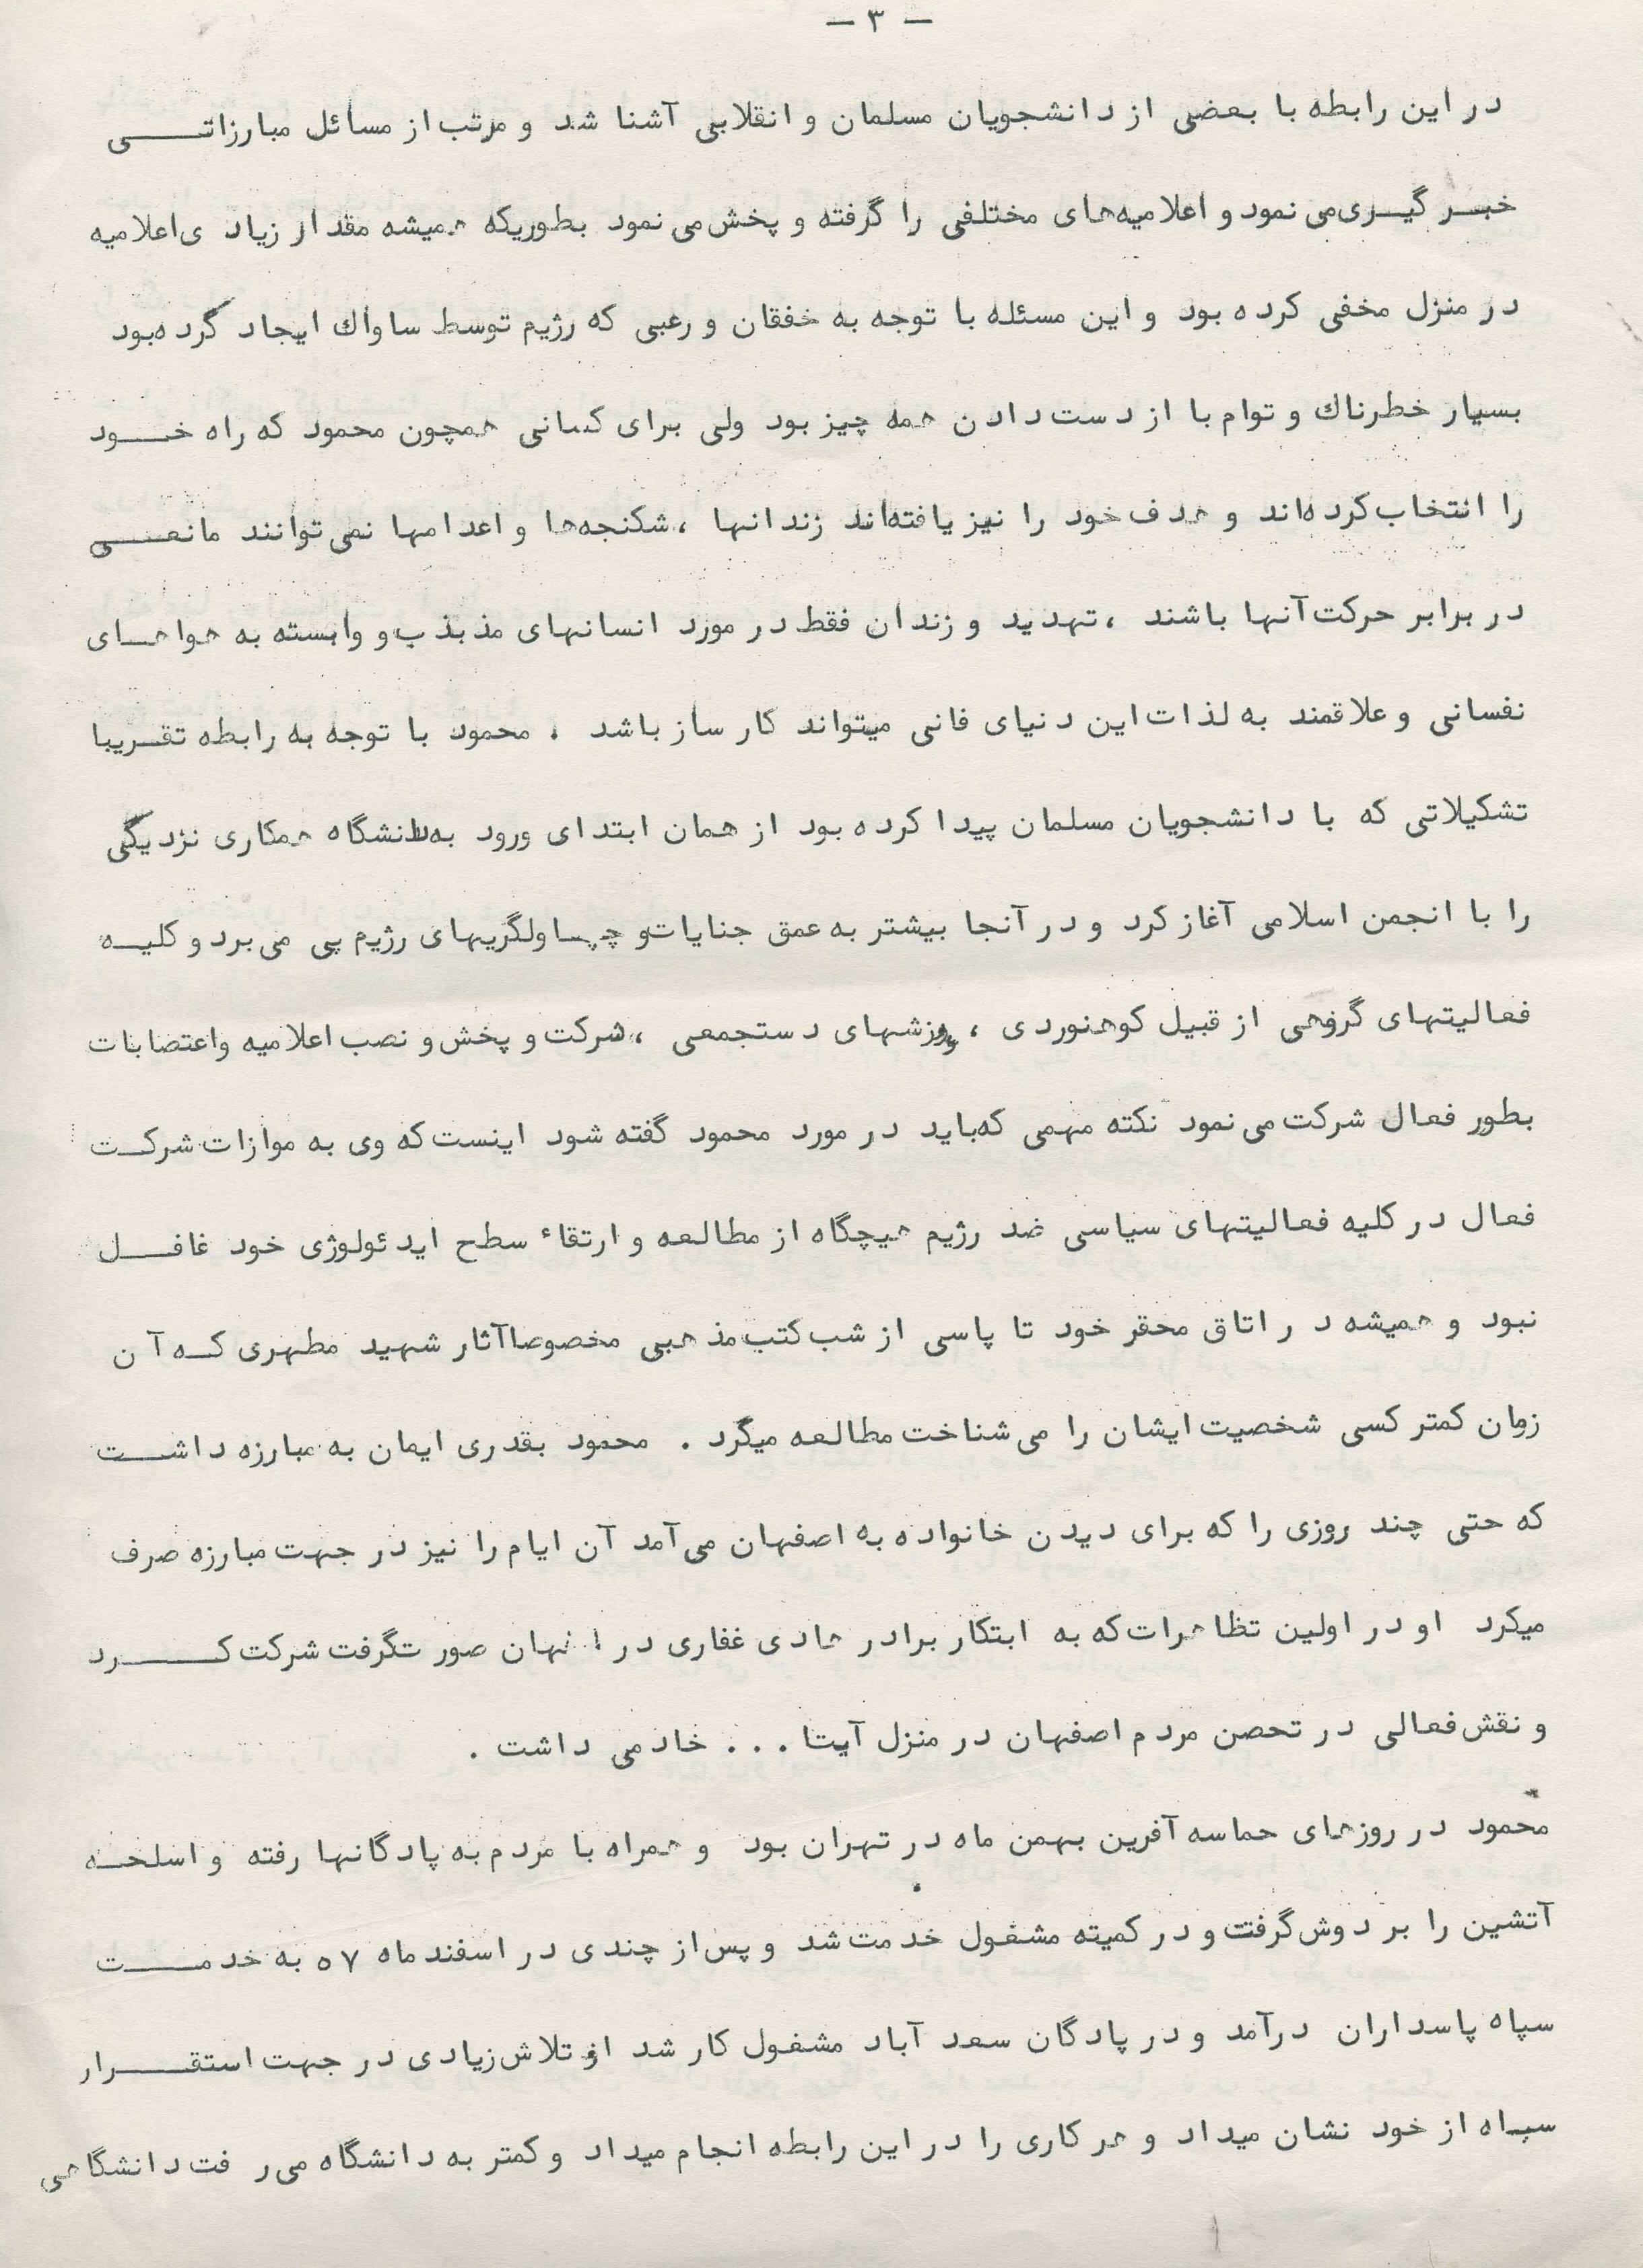 — ۳ —
در این رابطه با بعضی از دانشجویان مسلمان و انقلابی آشنا شد و مرتب از مسائل مبارزاتی
خبر گیری می نمود و اعلامیه‌های مختلفی را گرفته و پخش می نمود بطوریکه همیشه مقدار زیادی اعلامیه
در منزل مخفی کرده بود و این مسئله با توجه به خفقان و رعبی که رژیم توسط ساواک ایجاد کرده بود
بسیار خطرناک و توام با از دست دادن همه چیز بود ولی برای کسانی همچون محمود که راه خود
را انتخاب کرده‌اند و هدف خود را نیز یافته‌اند زندانها ، شکنجه‌ها و اعدامها نمی توانند مانعی
در برابر حرکت آنها باشند ، تهدید و زندان فقط در مورد انسانهای مذبذب و وابسته به هواهای
نفسانی و علاقمند به لذات این دنیای فانی میتواند کار ساز باشد . محمود با توجه به رابطه تقریبا
تشکیلاتی که با دانشجویان مسلمان پیدا کرده بود از همان ابتدای ورود به دانشگاه همکاری نزدیکی
را با انجمن اسلامی آغاز کرد و در آنجا بیشتر به عمق جنایات و چپاولگریهای رژیم پی می برد و کلیه
فعالیتهای گروهی از قبیل کوهنوردی ، ورزشهای دستجمعی ، شرکت و پخش و نصب اعلامیه و اعتصابات
بطور فعال شرکت می نمود نکته مهمی که باید در مورد محمود گفته شود اینست که وی به موازات شرکت
فعال در کلیه فعالیتهای سیاسی ضد رژیم هیچگاه از مطالعه و ارتقاء سطح ایدئولوژی خود غافل
نبود و همیشه در اتاق محقر خود تا پاسی از شب کتب مذهبی مخصوصا آثار شهید مطهری که آن
زمان کمتر کسی شخصیت ایشان را می شناخت مطالعه میکرد . محمود بقدری ایمان به مبارزه داشت
که حتی چند روزی را که برای دیدن خانواده به اصفهان می آمد آن ایام را نیز در جهت مبارزه صرف
میکرد او در اولین تظاهرات که به ابتکار برادر هادی غفاری در صورتگرفت شرکت کرد
و نقش فعالی در تحصن مردم اصفهان در منزل آیتا . . . خادمی داشت .
محمود در روزهای حماسه آفرین بهمن ماه در تهران بود و همراه با مردم به پادگانها رفته و اسلحه
آتشین را بر دوش گرفت و در کمیته مشغول خدمت شد و پس از چندی در اسفند ماه ۵۷ به خدمت
سپاه پاسداران درآمد و در پادگان سعد آباد مشغول کار شد او تلاش زیادی در جهت استقرار
سپاه از خود نشان میداد و هر کاری را در این رابطه انجام میداد و کمتر به دانشگاه می رفت دانشگاهی